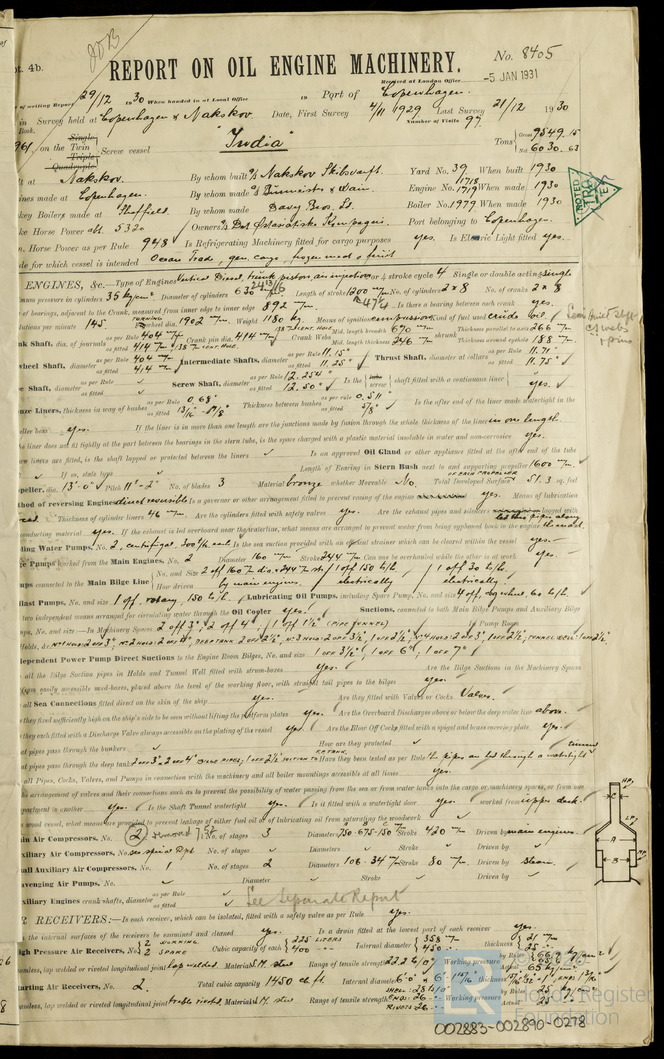 pt. 4b.
REPORT ON OIL ENGINE MACHINERY.
No. 8405
Received at London Office
-5 JAN 1931
of writing Report 29/12 1930 When handed in at Local Office 19 Port of Copenhagen.
in Survey held at Copenhagen & Nakskov. Date, First Survey 4/11 1929 Last Survey 21/12 1930
Book. Number of Visits 97
961 on the Single Twin Triple Quadruple Screw vessel "India" Tons Gross 9549.15 Net 6030.63
lt at Nakskov. By whom built Nakskov Skibsværft. Yard No. 39 When built 1930
ines made at Copenhagen. By whom made Burmeister & Wain. Engine No. 1718 1719 When made 1930
key Boilers made at Sheffield By whom made Davy Bros. Ld. Boiler No. 1979 When made 1930
ke Horse Power abt. 5320 Owners Det Østasiatiske Kompagni. Port belonging to Copenhagen.
n. Horse Power as per Rule 948 Is Refrigerating Machinery fitted for cargo purposes yes. Is Electric Light fitted yes.
de for which vessel is intended Ocean Trade, gen. cargo, frozen meat & fruit
ENGINES, &c.—Type of Engines Vertical Diesel, trunk piston, air injection 2 or 4 stroke cycle 4 Single or double acting single
mum pressure in cylinders 35 kg/cm² Diameter of cylinders 630 m/m Length of stroke 1200 m/m No. of cylinders 2 x 8 No. of cranks 2 x 8
of bearings, adjacent to the Crank, measured from inner edge to inner edge 892 m/m. Is there a bearing between each crank yes.
olutions per minute 145. Flywheel dia. 1902 m/m. Weight 1180 kg. Means of ignition compression Kind of fuel used crude oil
nk Shaft, dia. of journals as per Rule 404 m/m as fitted 414 m/m Crank pin dia. 414 m/m Crank Webs Mid. length breadth 670 m/m Mid. length thickness 246 m/m Thickness parallel to axis 266 m/m shrunk Thickness around eyehole 188 m/m
wheel Shaft, diameter as per Rule 404 m/m as fitted 414 m/m Intermediate Shafts, diameter as per Rule 11.15" as fitted 11.25" Thrust Shaft, diameter at collars as per Rule 11.71" as fitted 11.75"
e Shaft, diameter as per Rule as fitted Screw Shaft, diameter as per Rule 12.254" as fitted 12.50" Is the screw shaft fitted with a continuous liner yes.
nze Liners, thickness in way of bushes as per Rule 0.68" as fitted Thickness between bushes as per rule 0.511" as fitted 5/8" Is the after end of the liner made watertight in the
eller boss yes. If the liner is in more than one length are the junctions made by fusion through the whole thickness of the liner in one length.
he liner does not fit tightly at the part between the bearings in the stern tube, is the space charged with a plastic material insoluble in water and non-corrosive yes.
wo liners are fitted, is the shaft lapped or protected between the liners Is an approved Oil Gland or other appliance fitted at the after end of the tube
If so, state type Length of Bearing in Stern Bush next to and supporting propeller 1600 m/m.
peller, dia. 13'-0" Pitch 11'-2" No. of blades 3 Material bronze whether Moveable No. Total Developed Surface 51.3 sq. feet
thod of reversing Engines direct reversible Is a governor or other arrangement fitted to prevent racing of the engine yes. Means of lubrication
Thickness of cylinder liners 46 m/m. Are the cylinders fitted with safety valves yes. Are the exhaust pipes and silencers lagged with
conducting material yes. If the exhaust is led overboard near the waterline, what means are arranged to prevent water being syphoned back to the engine
ling Water Pumps, No. 2, centrifugal, Is the sea suction provided with an efficient strainer which can be cleared within the vessel yes.
ge Pumps worked from the Main Engines, No. 2 Diameter 160 m/m Stroke 244 m/m Can one be overhauled while the other is at work yes.
mps connected to the Main Bilge Line No. and Size 2 off 160 m/m dia x 244 m/m str. / 1 off 150 t/h / 1 off 30 t/h.
How driven by main engines. / electrically / electrically.
llast Pumps, No. and size 1 off, rotary, 150 t/h. Lubricating Oil Pumps, including Spare Pump, No. and size
two independent means arranged for circulating water through the Oil Cooler Yes. Suctions, connected to both Main Bilge Pumps and Auxiliary Bilge
mps, No. and size:—In Machinery Spaces 2 off 3", 2 off 4", 1 off 1½" (pipe tunnel) Pump Room
dependent Power Pump Direct Suctions to the Engine Room Bilges, No. and size 1 off 3½", 1 off 6", 1 off 7"
all the Bilge Suction pipes in Holds and Tunnel Well fitted with strum-boxes yes. Are the Bilge Suctions in the Machinery Spaces
from easily accessible mud-boxes, placed above the level of the working floor, with straight tail pipes to the bilges yes.
all Sea Connections fitted direct on the skin of the ship yes. Are they fitted with Valves or Cocks Valves.
they fixed sufficiently high on the ship's side to be seen without lifting the platform plates yes. Are the Overboard Discharges above or below the deep water line above.
they each fitted with a Discharge Valve always accessible on the plating of the vessel yes. Are the Blow Off Cocks fitted with a spigot and brass covering plate yes.
at pipes pass through the bunkers How are they protected
at pipes pass through the deep tanks Have they been tested as per Rule the pipes are led through a watertight tunnel
all Pipes, Cocks, Valves, and Pumps in connection with the machinery and all boiler mountings accessible at all times yes.
the arrangement of valves and their connections such as to prevent the possibility of water passing from the sea or from water tanks into the cargo or machinery spaces, or from one
partment to another yes. Is the Shaft Tunnel watertight yes. Is it fitted with a watertight door yes. worked from upper deck.
a wood vessel, what means are provided to prevent leakage of either fuel oil or lubricating oil from saturating the woodwork
ain Air Compressors, No. 2 removed 7.52 No. of stages 3 Diameters 750-675-150 m/m Stroke 420 m/m Driven by main engines.
uxiliary Air Compressors, No. see special Rpt No. of stages Diameters Stroke Driven by
all Auxiliary Air Compressors, No. 1 No. of stages 2 Diameters 108-34 m/m Stroke 80 m/m Driven by steam.
avenging Air Pumps, No. Diameter Stroke Driven by
uxiliary Engines crank shafts, diameter as per Rule as fitted See Separate Report
R RECEIVERS:—Is each receiver, which can be isolated, fitted with a safety valve as per Rule yes.
the internal surfaces of the receivers be examined and cleaned yes. Is a drain fitted at the lowest part of each receiver yes.
igh Pressure Air Receivers, No. 2 working 2 spare Cubic capacity of each 225 liters 400 Internal diameter 358 m/m 450 thickness 21 m/m 25
amless, lap welded or riveted longitudinal joint lap welded. Material S.M. steel Range of tensile strength Working pressure by Rules Actual 65 kg/cm²
tarting Air Receivers, No. 2. Total cubic capacity 1450 cb ft. Internal diameter 6'0" thickness
amless, lap welded or riveted longitudinal joint treble riveted, Material S.M. steel Range of tensile strength Working pressure by Rules Actual 25
© 2020
LR
Lloyd's Register
Foundation
002883-002890-0278